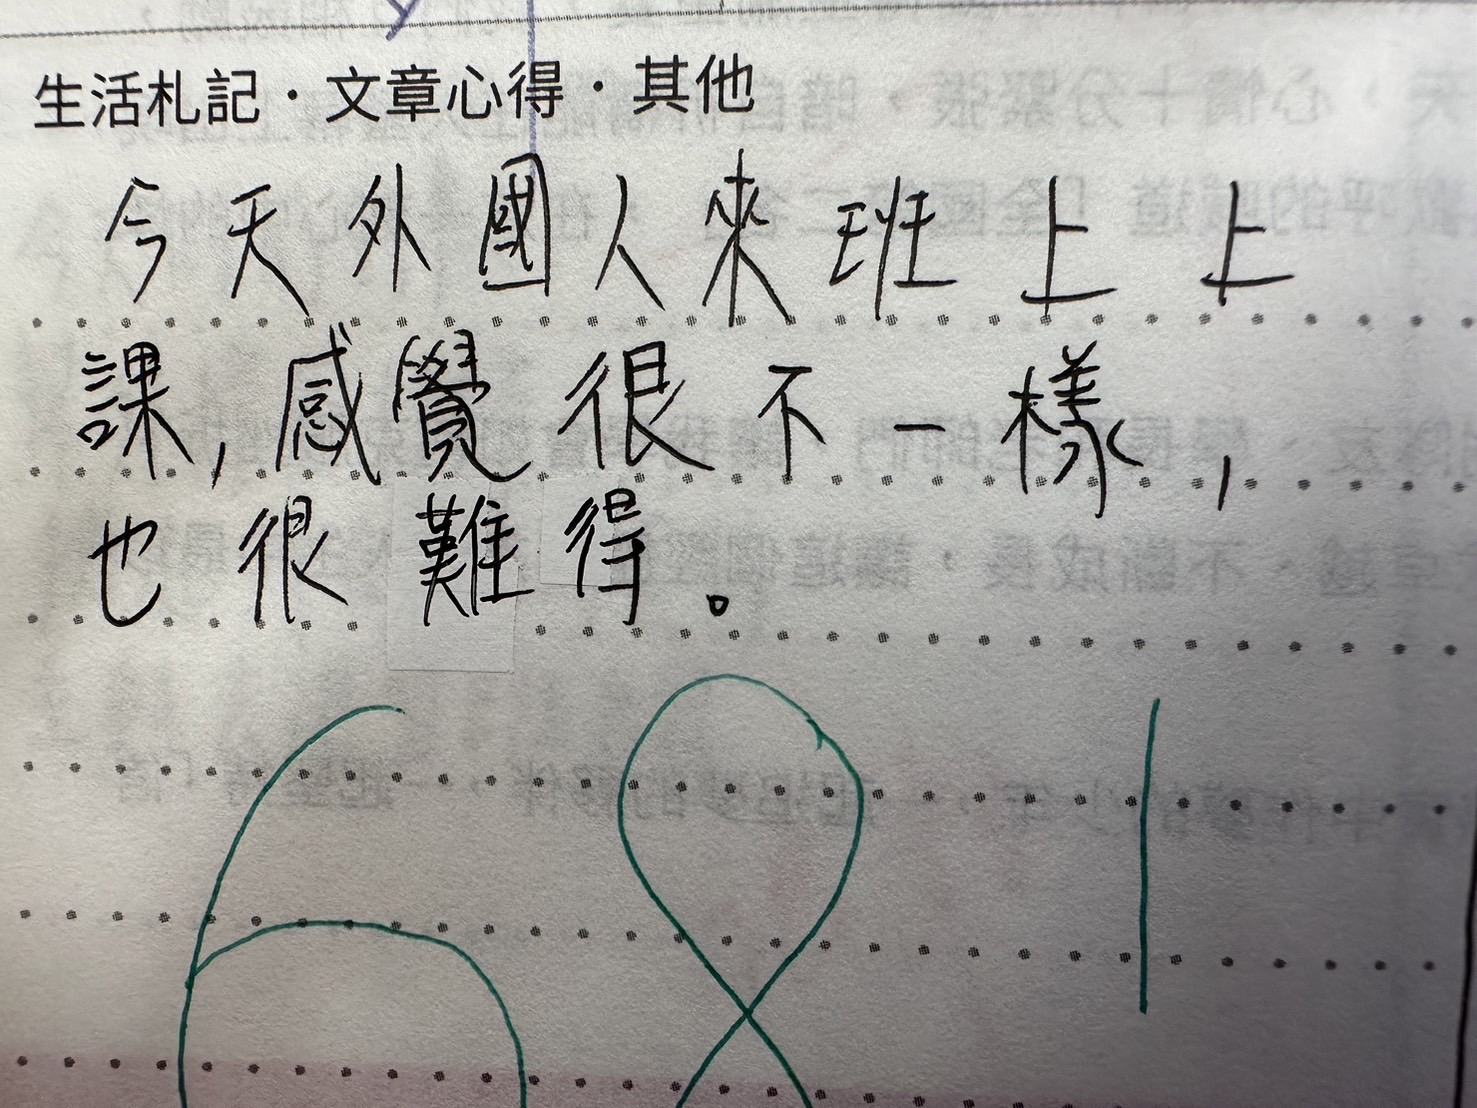 生活札記·文章心得·其他
今天外國人來班上上
課,感覺很不一樣,
也很難得。
681